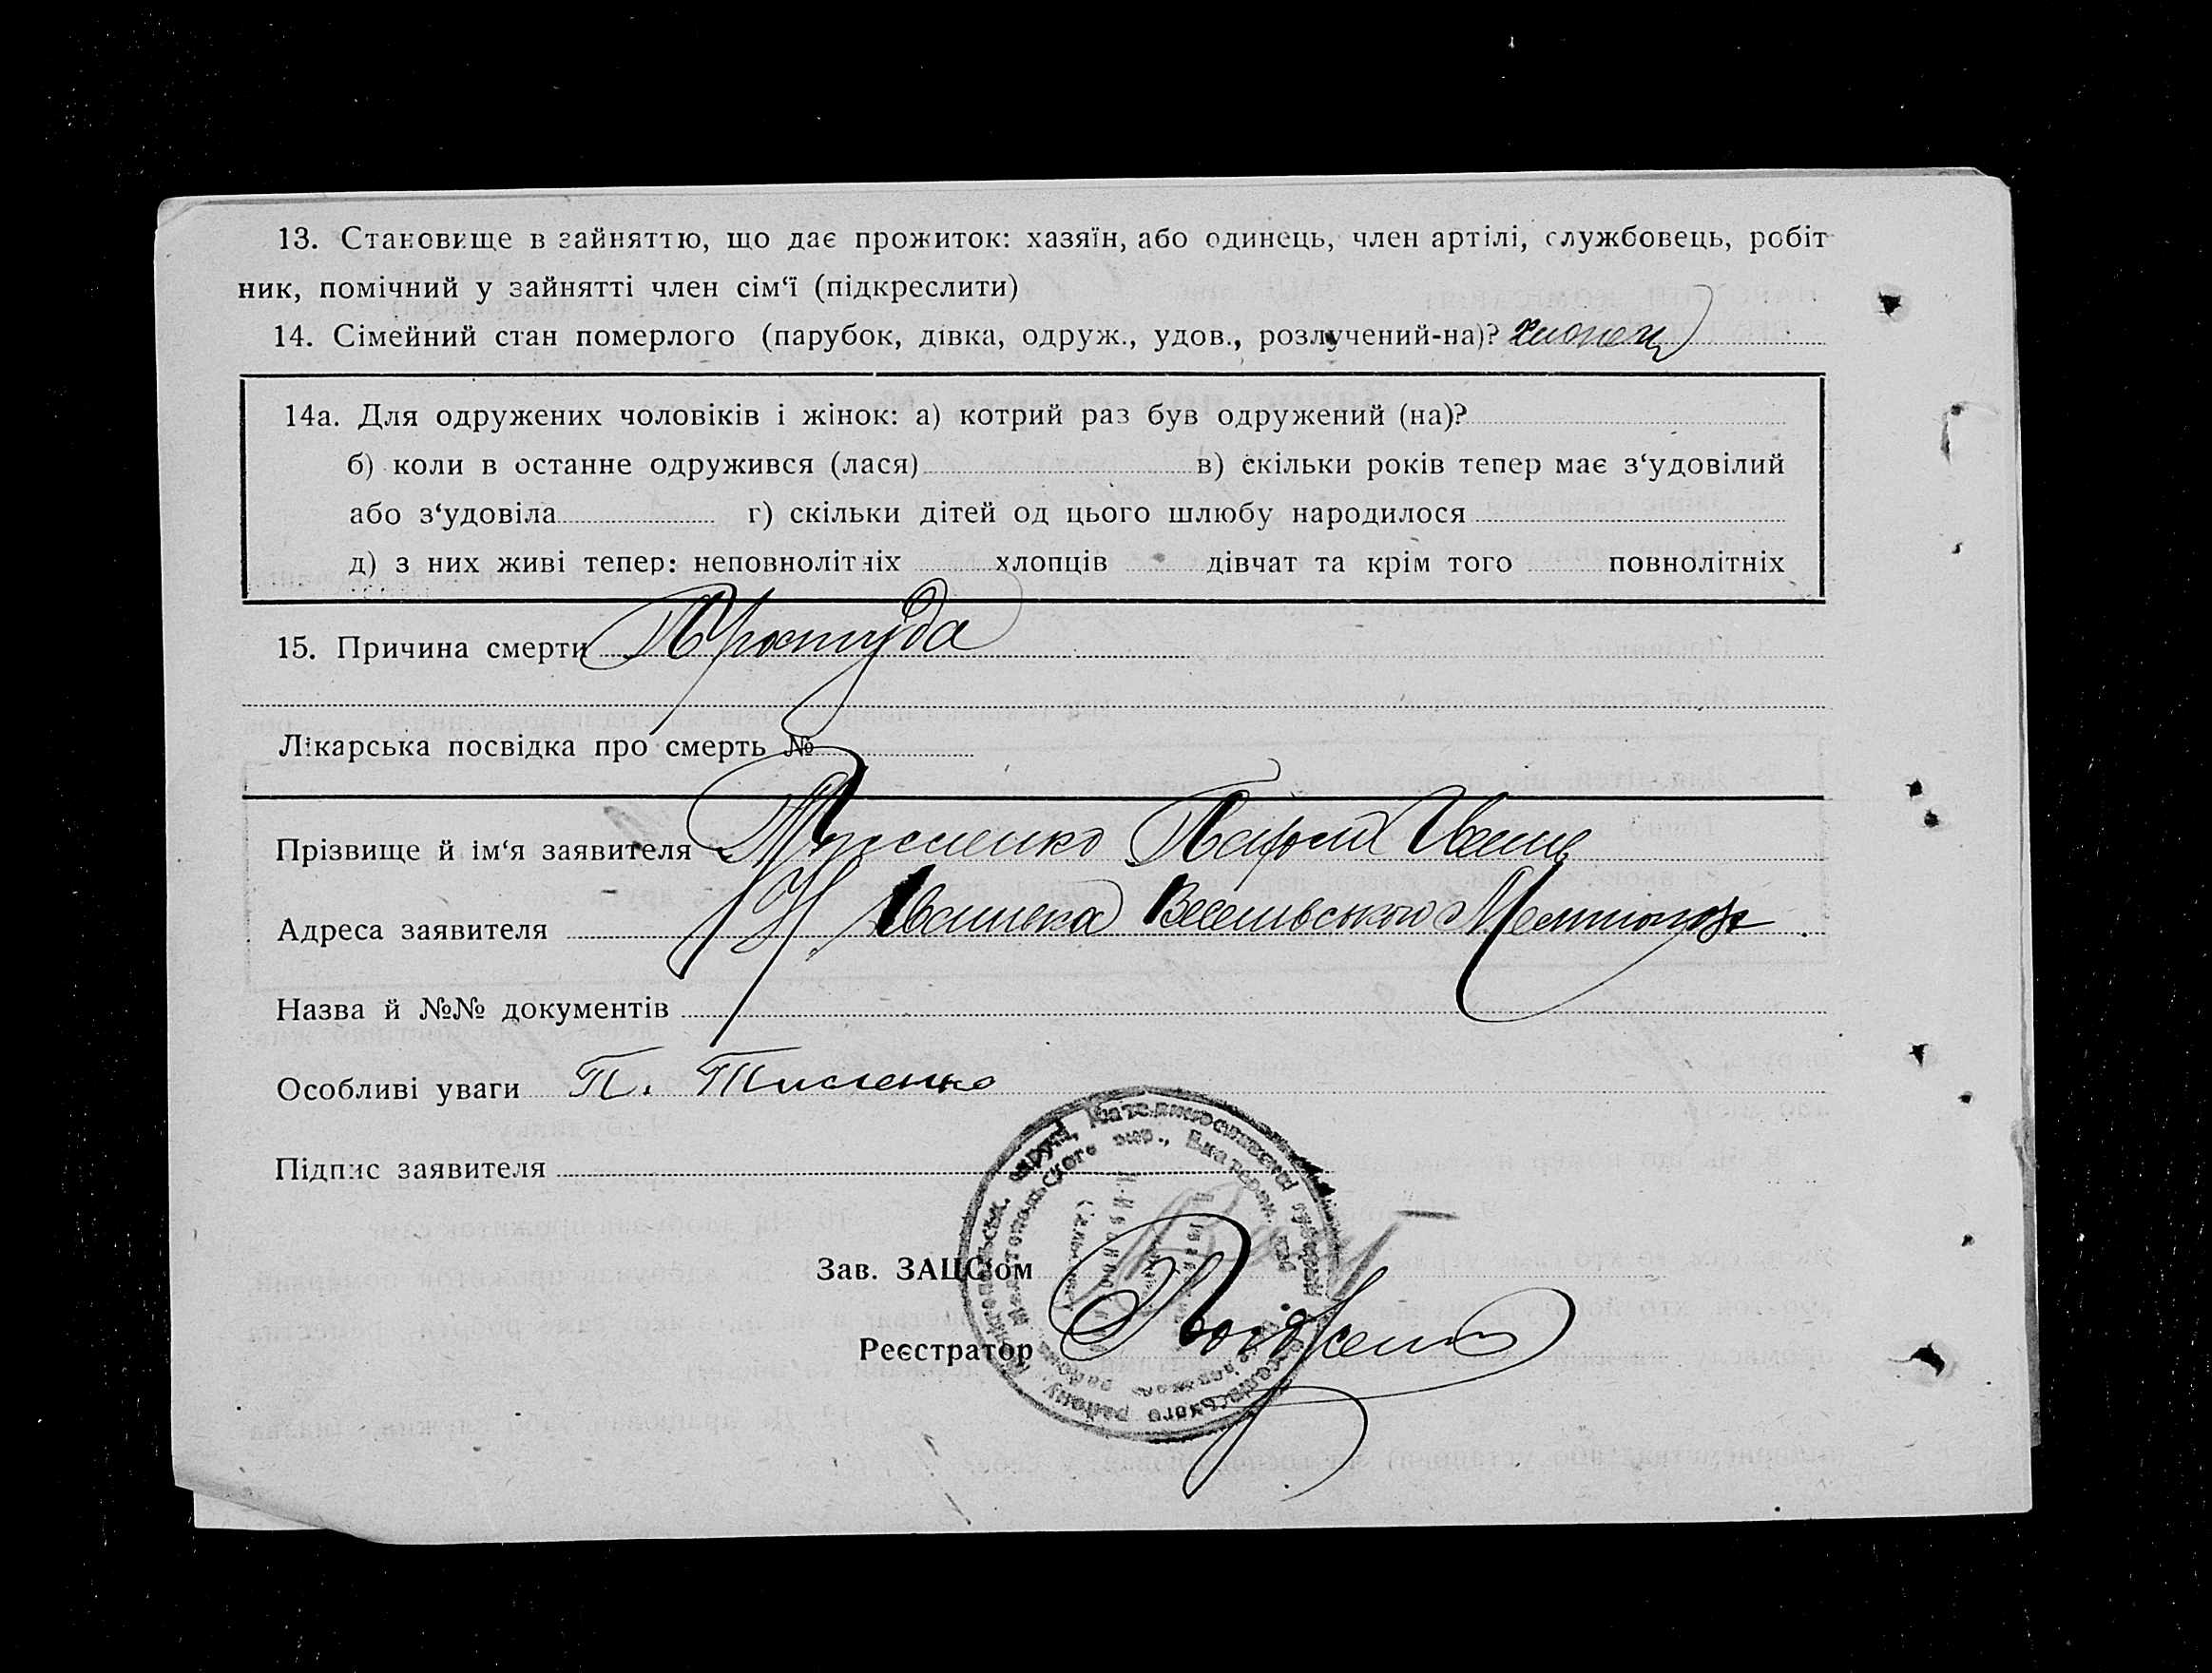 13. Становище в зайняттю, що дає прожиток: хазяїн, або одинець, член артілі, службовець, робіт
ник, помічний у зайнятті член сім‘ї (підкреслити)
14. Сімейний стан померлого (парубок, дівка, одруж., удов., розлучений-на)? хлопець
14а. Для одружених чоловіків і жінок: а) котрий раз був одружений (на)?
б) коли в останне одружився (лася) в) скільки років тепер має з‘удовілий
або з‘удовіла г) скільки дітей од цього шлюбу народилося
д) з них живі тепер: неповнолітніх хлопців дівчат та крім того повнолітніх
15. Причина смерти Простуда
Лікарська посвідка про смерть №
Прізвище й ім‘я заявителя
Адреса заявителя Н Іванівка Веселівського
Назва й №№ документів
Особливі уваги П. Тисленко
Підпис заявителя
Зав. ЗАЦС‘ом
Реєстратор